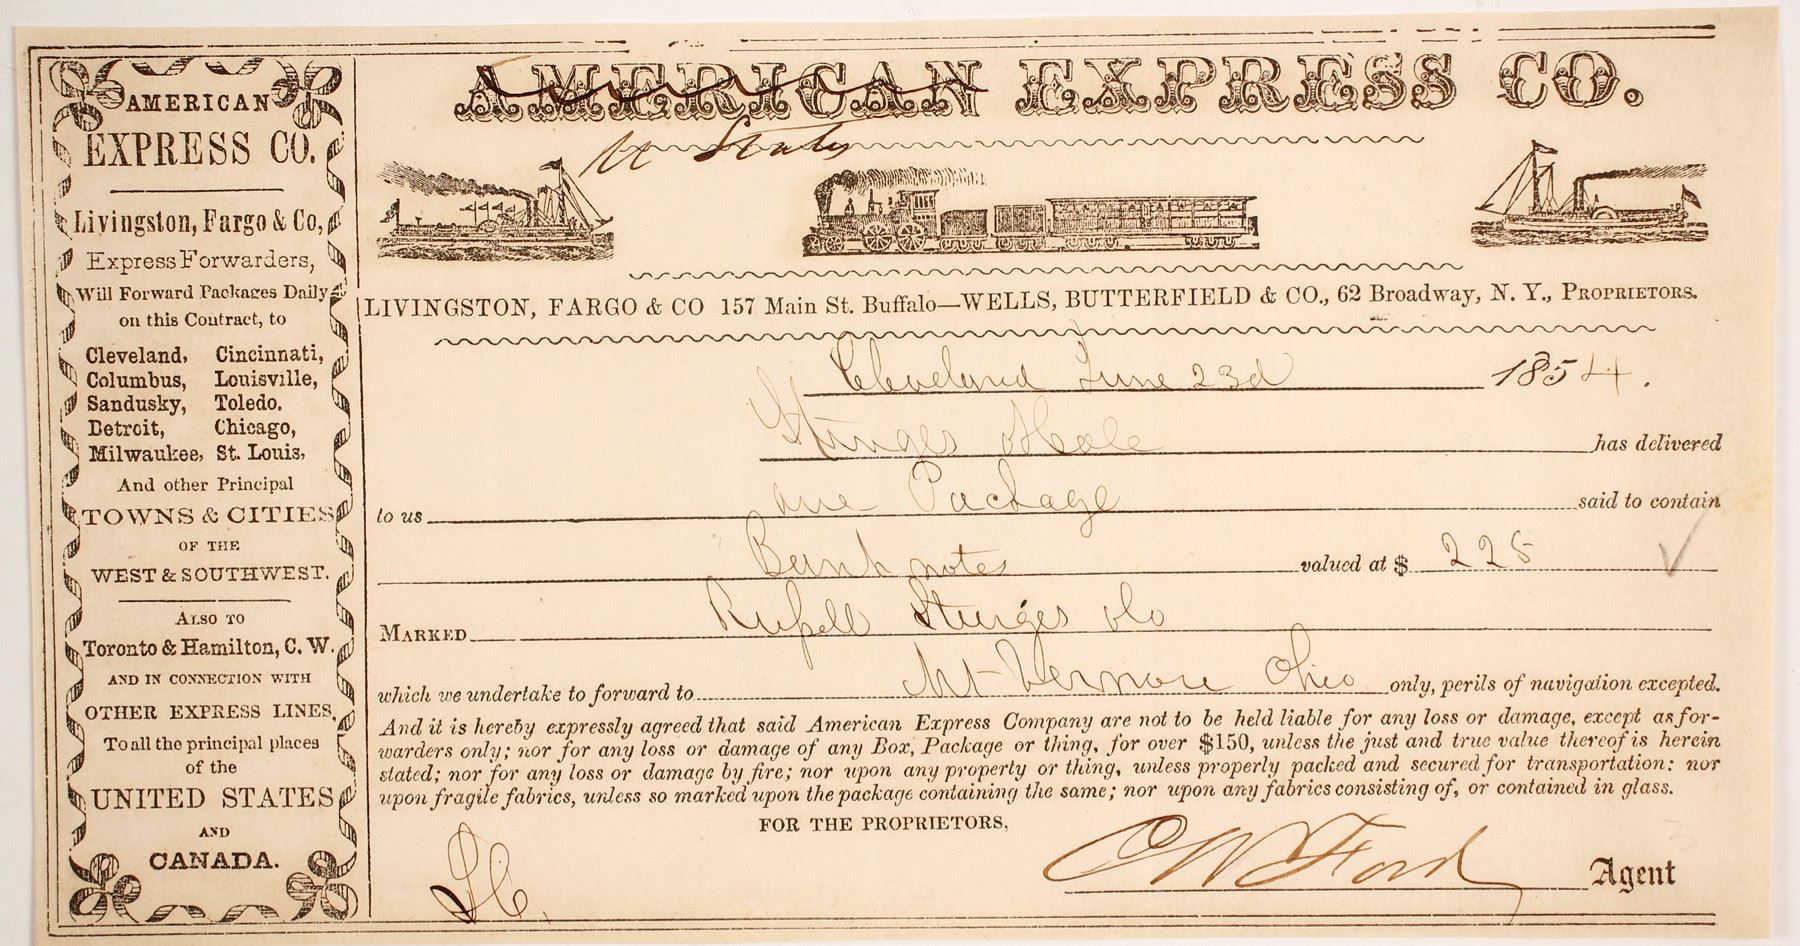 AMERICAN
EXPRESS CO.
Livingston, Fargo & Co,
Express Forwarders,
Will Forward Packages Daily
on this Contract, to
Cleveland, Cincinnati,
Columbus, Louisville,
Sandusky, Toledo.
Detroit, Chicago,
Milwaukee, St. Louis,
And other Principal
TOWNS & CITIES
OF THE
WEST & SOUTHWEST.
ALSO TO
Toronto & Hamilton, C. W.
AND IN CONNECTION WITH
OTHER EXPRESS LINES,
To all the principal places
of the
UNITED STATES
AND
CANADA.
AMERICAN EXPRESS CO.
U States
LIVINGSTON, FARGO & CO 157 Main St. Buffalo—WELLS, BUTTERFIELD & CO., 62 Broadway, N. Y., PROPRIETORS.
Cleveland June 23d 1854.
Sturges has delivered
to us one Package said to contain
Bank notes valued at $ 225
MARKED Russell Sturges & Co
which we undertake to forward to Mt Vernon Ohio only, perils of navigation excepted.
And it is hereby expressly agreed that said American Express Company are not to be held liable for any loss or damage, except as for-
warders only; nor for any loss or damage of any Box, Package or thing, for over $150, unless the just and true value thereof is herein
stated; nor for any loss or damage by fire; nor upon any property or thing, unless properly packed and secured for transportation: nor
upon fragile fabrics, unless so marked upon the package containing the same; nor upon any fabrics consisting of, or contained in glass.
FOR THE PROPRIETORS,
C W Ford Agent